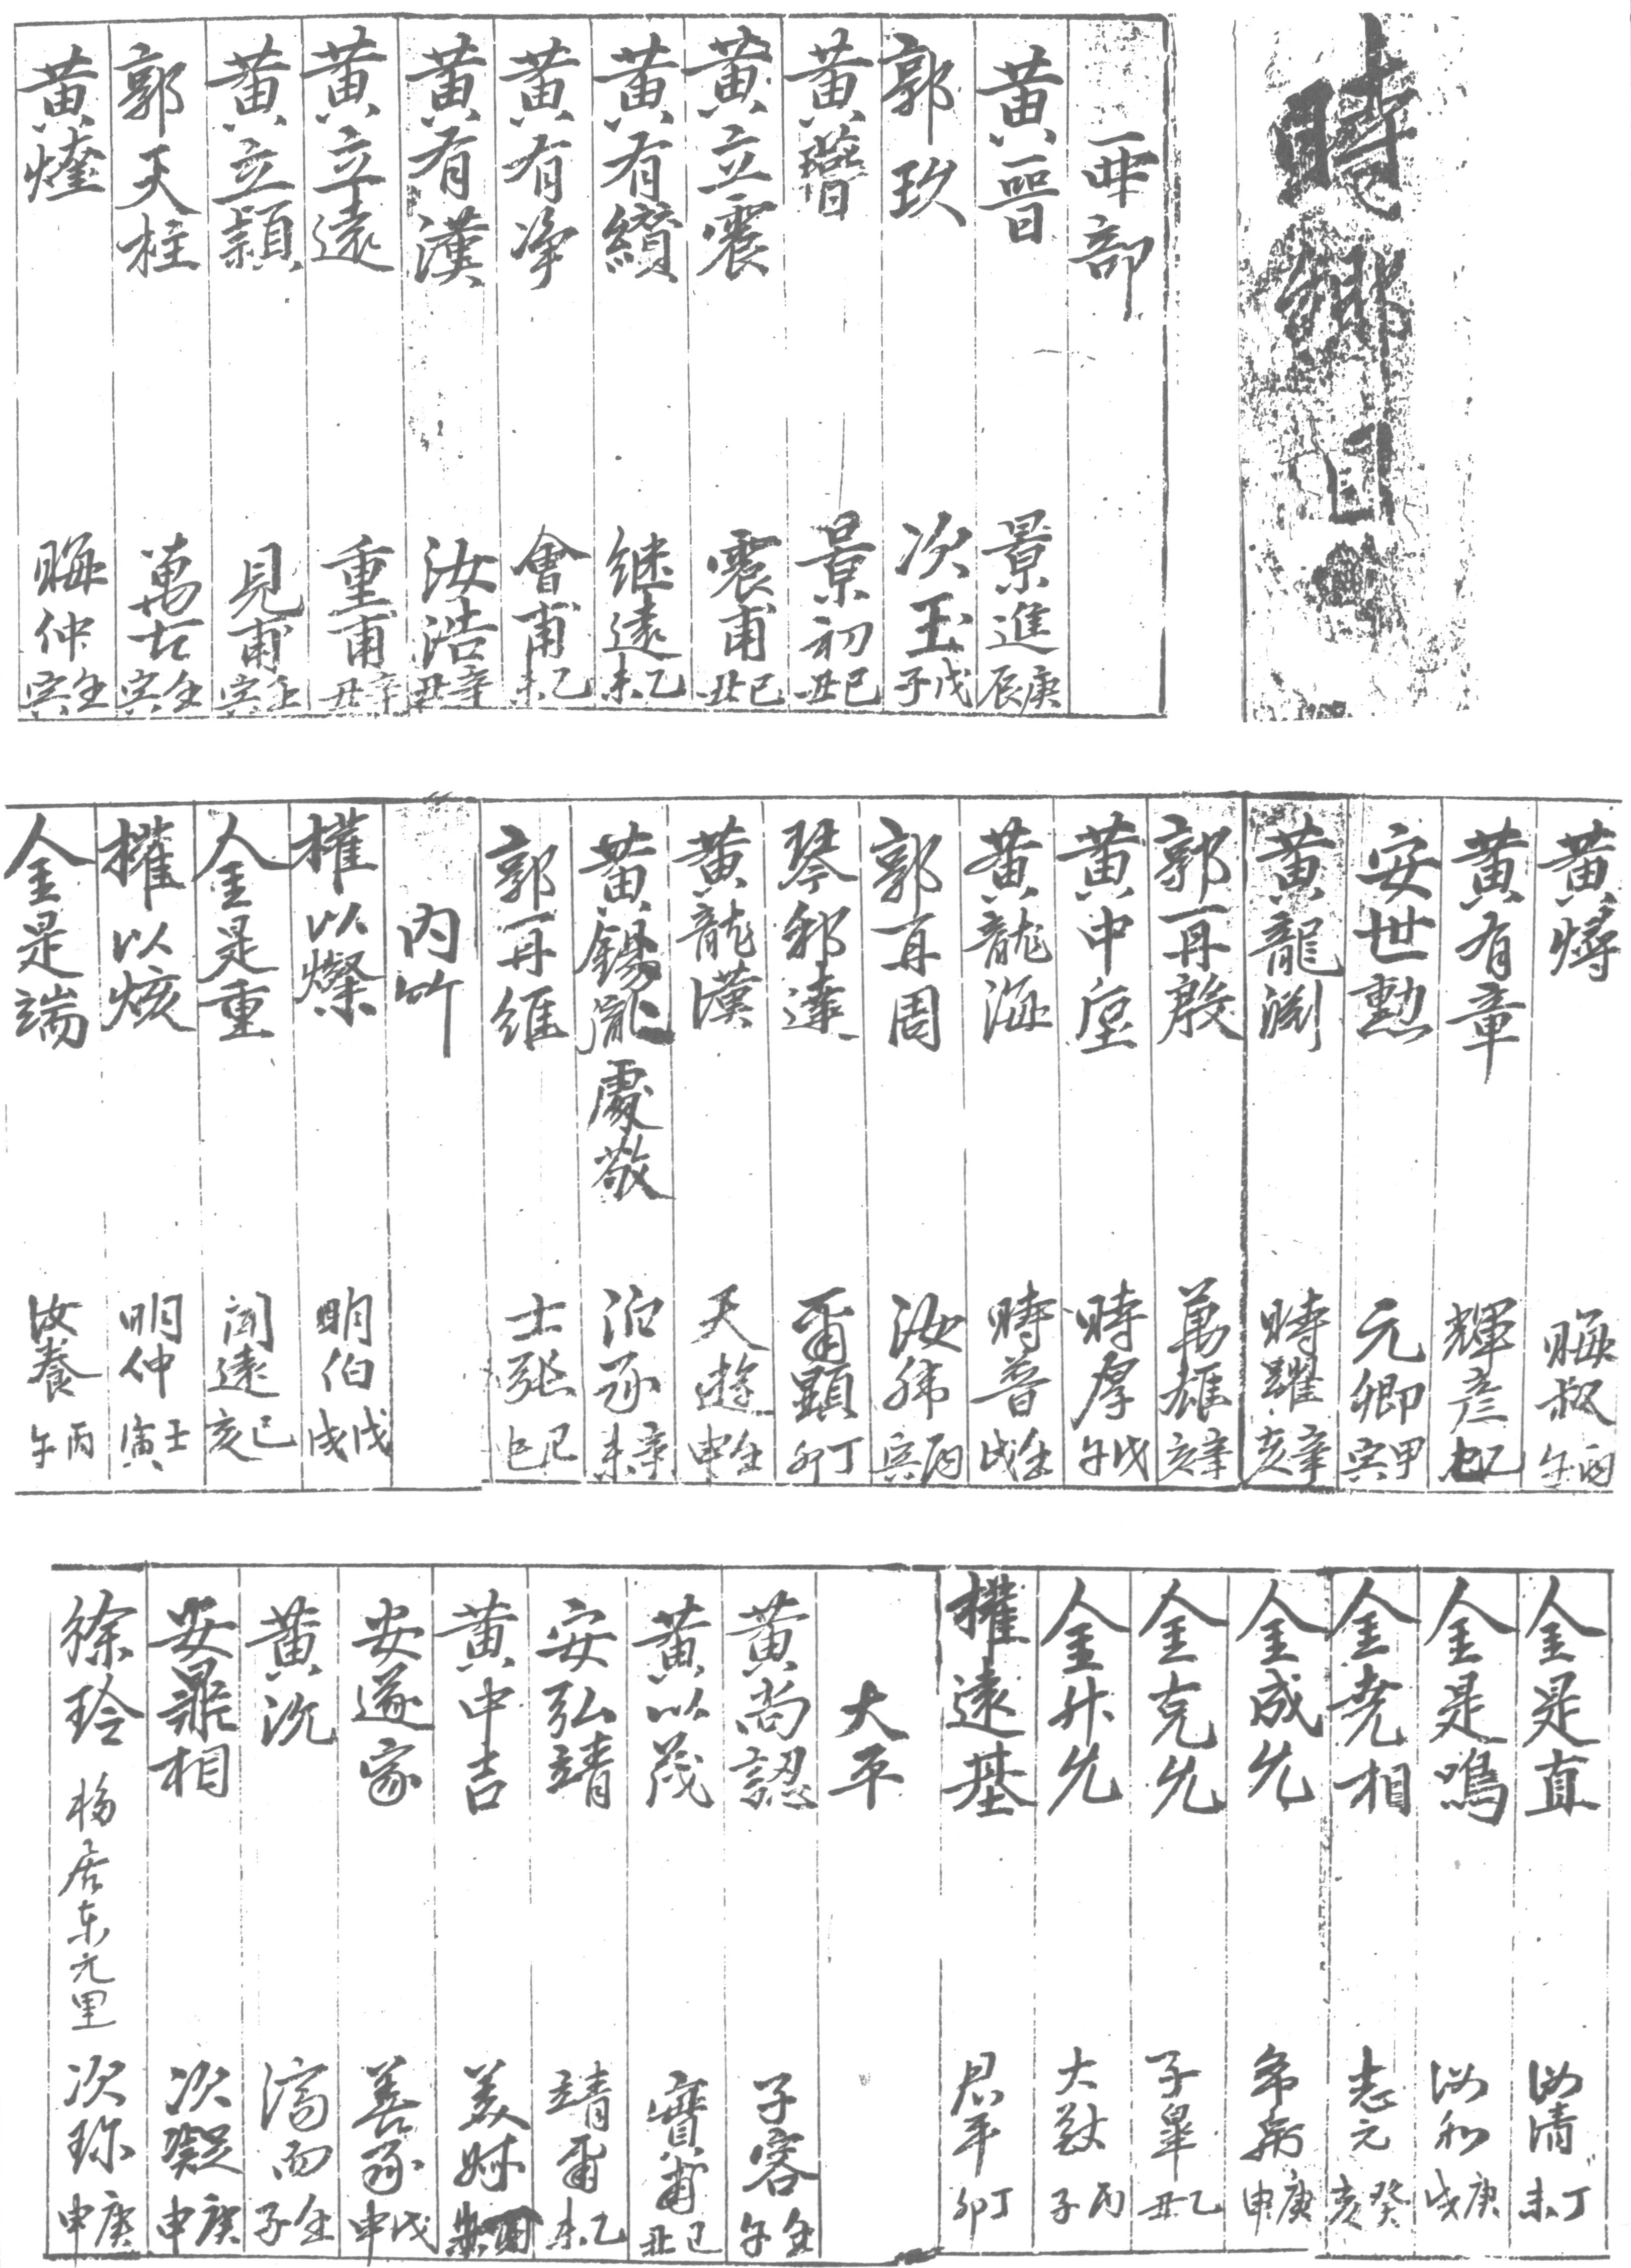 時鄉目
畢部
黃晋 景進 庚辰
郭玖 次玉 戊子
黃𤩴 景初 己丑
黃立震 震甫 己丑
黃有纘 継遠 乙未
黃有净 會甫 乙未
黃有漢 汝浩 辛丑
黃立遠 重甫 辛丑
黃立潁 見甫 壬寅
郭天柱 萬古 壬寅
黃燵 晦仲 壬寅
黃燖 晦叔 丙午
黃有章 輝彦 乙巳
安世勲 元卿 甲寅
黃龍渕 時躍 辛亥
郭再殷 萬雄 辛亥
黃中垕 時厚 戊午
黃龍海 時普 壬戌
郭再周 汝緯 丙寅
琴邦達 甭顕 丁卯
黃龍漢 天遊 壬申
黃錫龍 處敬 辛未
郭再維 士張 己巳
內竹
權以燦 明伯 戊戌
金是重 聞遠 己亥
權以烗 明仲 壬寅
金是端 汝養 丙午
金是直 汝清 丁未
金是鳴 汝和 庚戌
金尭相 志元 癸亥
金成允 庚申
金克允 子皐 乙丑
金升允 大猷 丙子
權遠基 君平 丁卯
大平
黃尚認 子容 壬午
黃以茂 實甫 己丑
安弘靖 靖甫 乙未
黃中吉 美姊
安遂家 善承 戊申
黃沇 濟而 壬子
安鼎相 次凝 庚申
徐玲 移居東元里 次珎 庚申